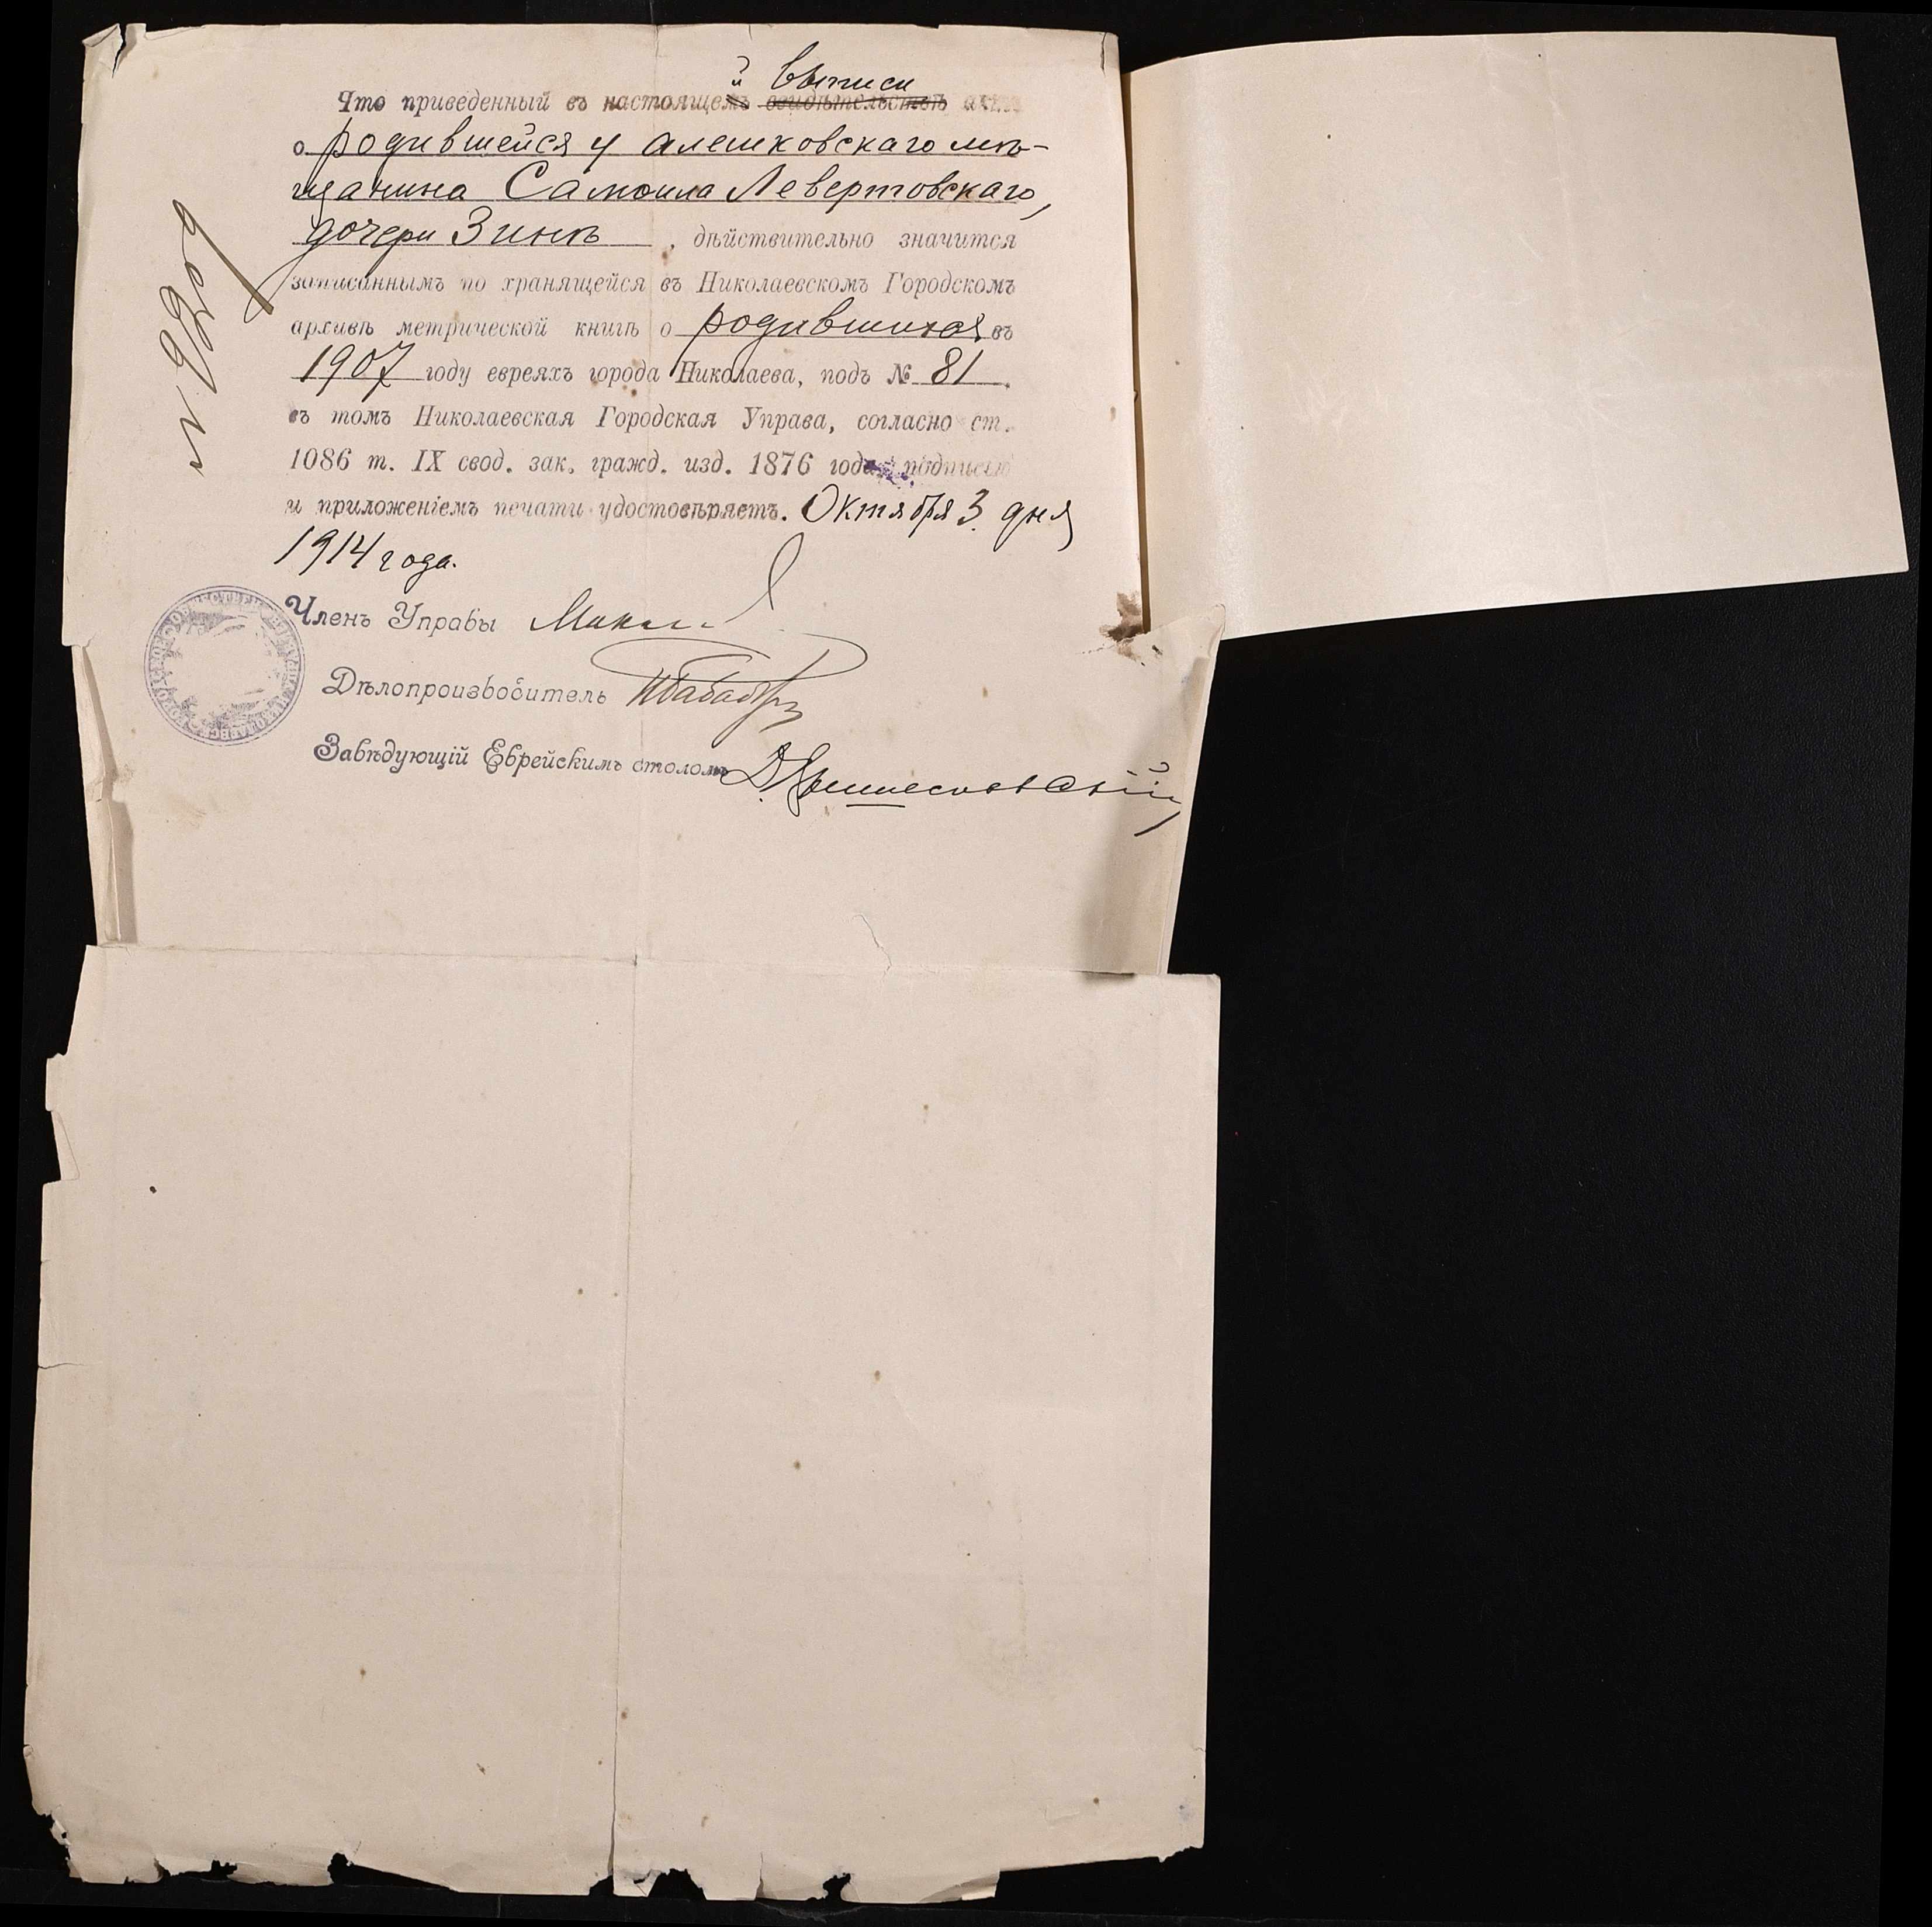 Что приведенный въ настоящей выписи
о родившейся у алешковскаго мѣ-
щанина Самоила Левертовскаго,
дочери Зинѣ, дѣйствительно значится
записаннымъ по хранящейся въ Николаевскомъ Городскомъ
архивѣ метрической книгѣ о родившихся въ
1907 году евреяхъ города Николаева, подъ № 81.
въ томъ Николаевская Городская Управа, согласно ст.
1086 т. IX свод. зак. гражд. изд. 1876 года подписью
и приложеніемъ печати удостовѣряетъ. Октября 3 дня
1914 года.
Членъ Управы
Дѣлопроизводитель
Завѣдующій Еврейскимъ столомъ